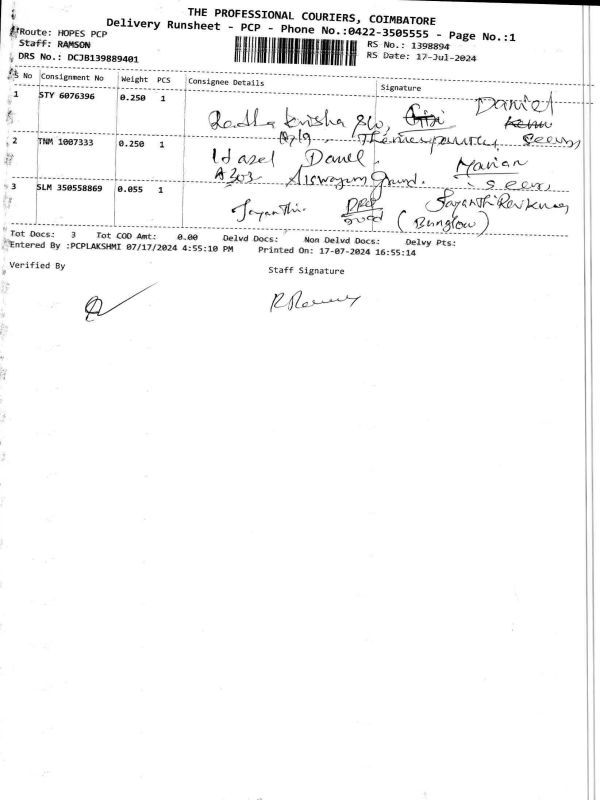 THE PROFESSIONAL COURIERS, COIMBATORE
Delivery Runsheet - PCP - Phone No.:0422-3505555 - Page No.:1
Route: HOPES PCP
RS No.: 1398894
Staff: RAMSON
RS Date: 17-Jul-2024
DRS No.: DCJB139889401
S No Consignment No Weight PCS Consignee Details Signature
1 STY 6076396 0.250 1
Daniel
Radha
2 TNM 1007333 0.250 1
Hasel Daniel Marian
A 303
3 SLM 350558869 0.055 1
Jayanthi
(Bunglow)
Tot Docs: 3 Tot COD Amt: 0.00 Delvd Docs: Non Delvd Docs: Delvy Pts:
Entered By :PCPLAKSHMI 07/17/2024 4:55:10 PM Printed On: 17-07-2024 16:55:14
Verified By
Staff Signature